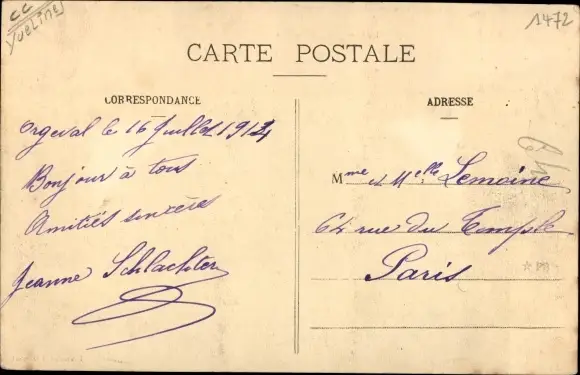 CC
Yvelines
1472
CARTE POSTALE
CORRESPONDANCE
ADRESSE
Orgeval le 16 Juillet 1914
Bonjour à tous
Amitiés sincères
Jeanne Schlachter
Mme et Melle Lemoine
64 rue du Temple
Paris